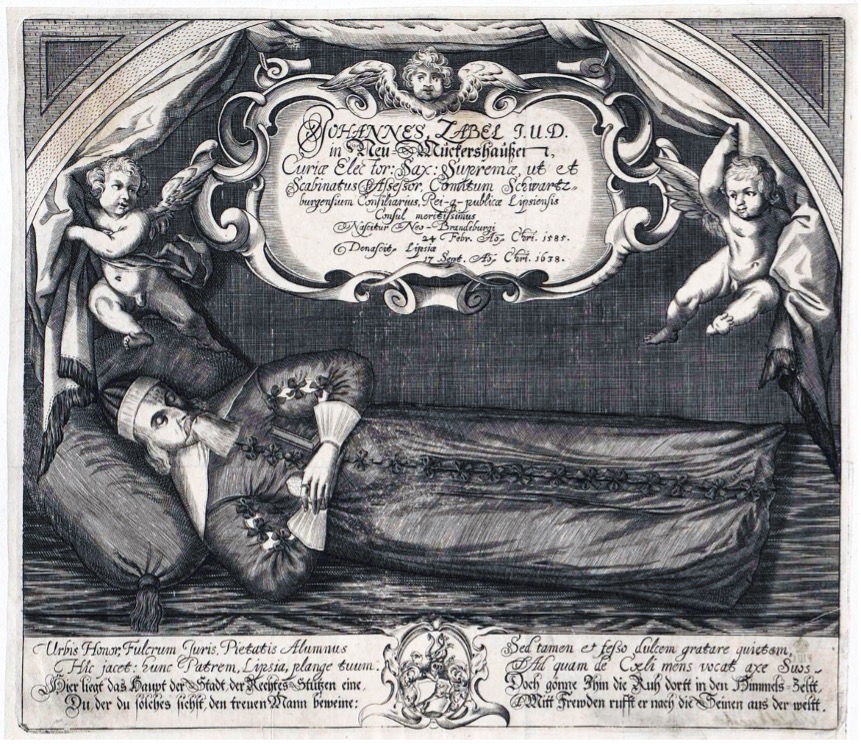 JOHANNES ZABEL J.U.D.
in Neu-Mückershaußen,
Curiæ Elector: Sax: Supremæ, ut et
Scabinatus Assessor, Comitum Schwartz-
burgensium Consiliarius, Rei-q-publicæ Lipsiensis
Consul meritissimus
Nascitur Neo-Brandeburgi
24 Febr. Aō, Chrī. 1585.
Denascit, Lipsiæ
17 Sept. Aō, Chrī. 1638.
Urbis Honor, Fulcrum Juris, Pietatis Alumnus
Hîc jacet: hunc Patrem, Lipsia, plange tuum:
Hier liegt das Haupt der Stadt, der Rechtes Stützen eine,
Du, der du solches sichst, den treuen Mann beweine:
Sed tamen et fesso dulcem gratare quietem,
Ad quam de Cœli mens vocat axe Suos.
Doch gönne Ihm die Ruh dortt in den Himmels-Zeltt,
Mitt Frewden rufft er nach die Seinen aus der weltt.